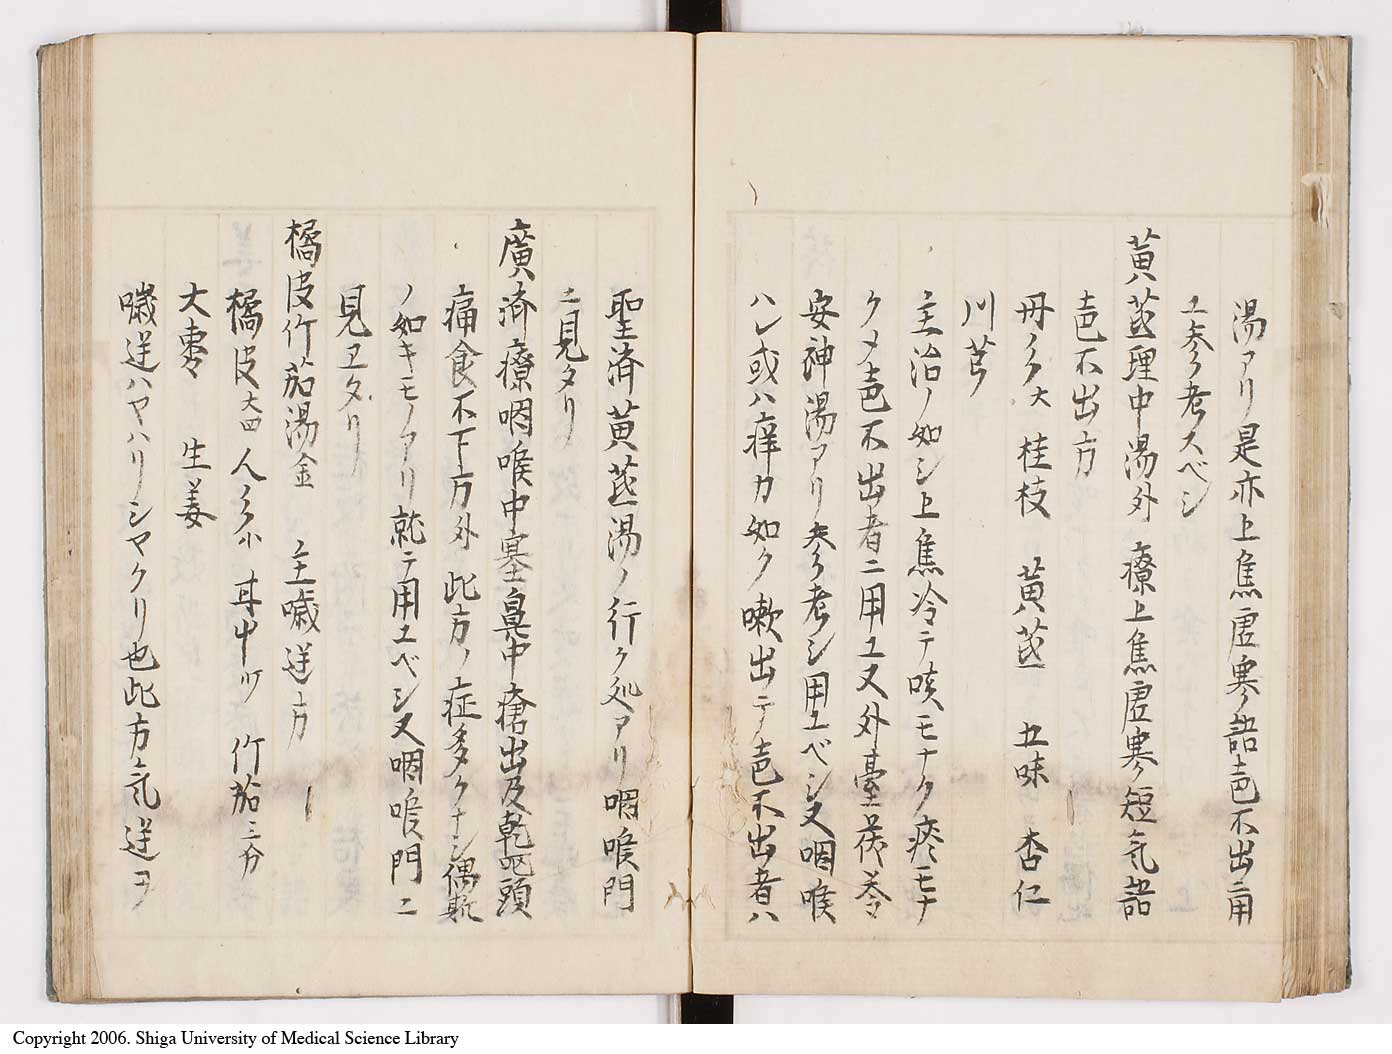 湯アリ是亦上焦虚寒語声不出ニ用
ユ参考スベシ
黄茋理中湯外 療上焦虚寒短気語
声不出方
丹参大 桂枝 黄茋 五味 杏仁
川芎
主治ノ如シ上焦冷テ咳モナク痰モナ
クメ声不出者ニ用ユ又外臺茯苓
安神湯アリ参考シ用ユベシ又咽喉
ハレ或ハ痒カ如ク嗽出テ声不出者ハ
聖済黄茋湯ノ行ク処アリ咽喉門
ニ見タリ
廣済療咽喉中塞鼻中瘡出及乾呕頭
痛食不下方外 此方ノ症多クナシ偶斯
ノ如キモノアリ就テ用ユベシ又咽喉門ニ
見ヱタリ
橘皮竹茄湯金 主噦逆方
橘皮大四 人参小 甘中ツ 竹茄二分
大棗 生姜
噦逆ハヤハリシヤクリ也此方気逆ヲ
Copyright 2006. Shiga University of Medical Science Library